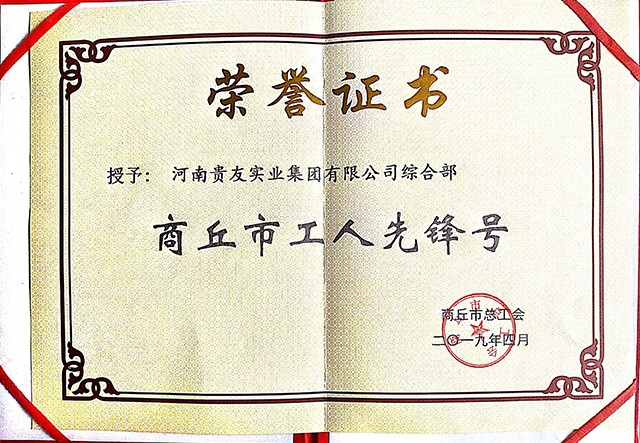 荣誉证书
授予：河南贵友实业集团有限公司综合部
商丘市工人先锋号
商丘市总工会
二〇一九年四月